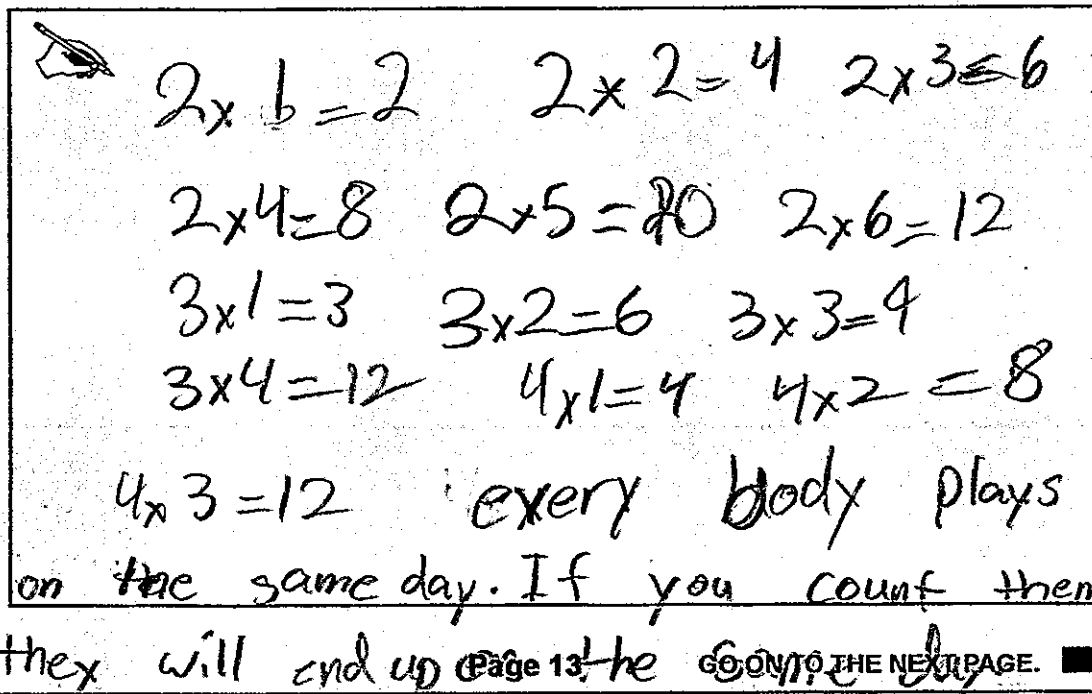 2x1=2 2x2=4 2x3=6
2x4=8 2x5=10 2x6=12
3x1=3 3x2=6 3x3=9
3x4=12 4x1=4 4x2=8
4x3=12 every body plays
on the same day. If you count them
they will end up on the same day
Page 13 GO ON TO THE NEXT PAGE.